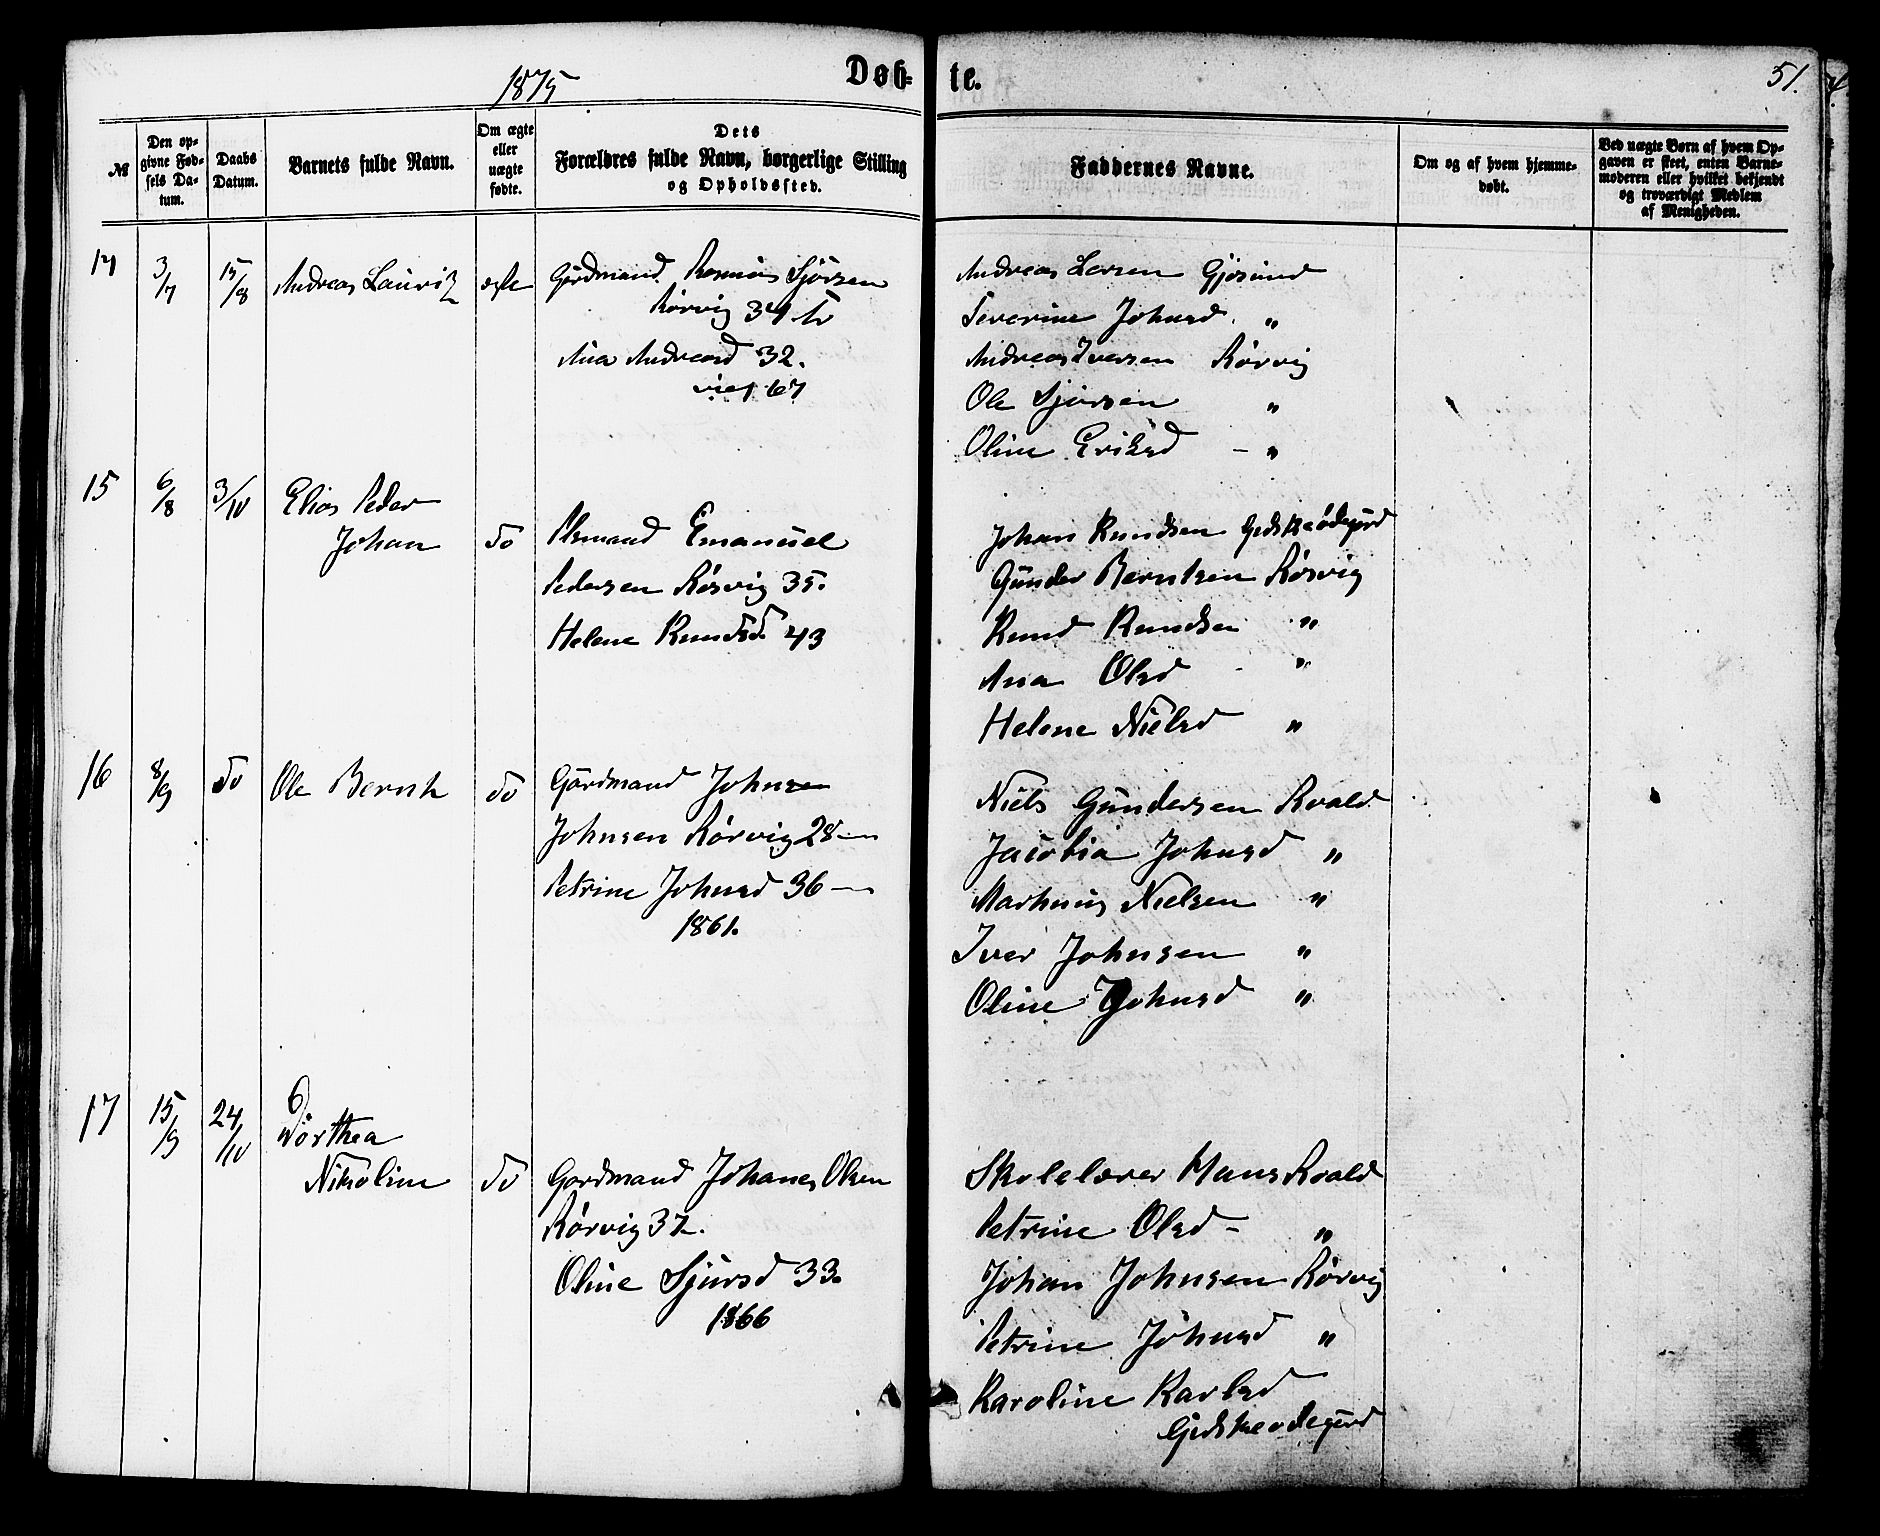 1875
Døb-
te.
51.
№
Den op-
givne Fød-
sels Da-
tum.
Daabs
Datum.
Barnets fulde Navn.
Om ægte
eller
uægte
fødte.
Dets
Forældres fulde Navn, borgerlige Stilling
og Opholdssted.
Faddernes Navne.
Om og af hvem hjemme-
døbt.
Ved uægte Børn af hvem Op-
gaven er skeet, enten Barne-
moderen eller hvilket bekjendt
og troværdigt Medlem
af Menigheden.
14 3/7 15/8 Andreas Lauritz ægte
Gårdmand Rasmus Sjørsen
Rørvig 34
Ana Andreasd 32.
viet 67
Andreas Larsen Gjøsund
Severine Johnsd. "
Andreas Iversen Rørvig
Ole Sjursen "
Oline Eriksd - "
15 6/8 3/10 Elias Peder
Johan do
Emanuel
Pedersen Rørvig 35.
Helene Knudsd. 43
Johan Knudsen Gidskeødegård
Gunder Berntsen Rørvig
Knud Knudsen "
Ana Olsd - "
Helene Nielsd "
16 8/9 do Ole Bernt do
Gårdmand Johnsen
Johnsen Rørvig 28 —
Petrine Johnsd 36 —
1861.
Niels Gundersen Roald
Jacobia Johnsd "
Marthinus Nielsen "
Iver Johnsen "
Oline Johnsd "
17 15/9 24/10 Dorthea
Nikoline do
Gårdmand Johanes Olsen
Rørvig 37.
Oline Sjursd 33.
1866
Skolelærer Hans Roald
Petrine Olsd - "
Johan Johnsen Rørvig
Petrine Johnsd "
Karoline Karlsd
Gidskeødegård